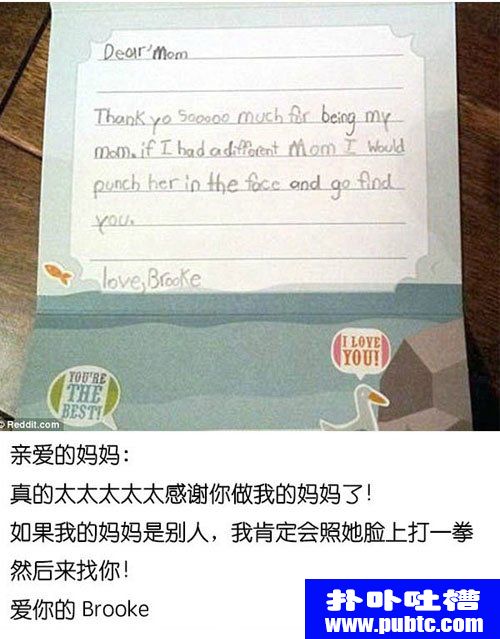 Dear Mom
Thank yo Sooooo much for being my
mom. if I had a different Mom I would
punch her in the face and go find
you.
love, Brooke
I LOVE
YOU!
YOU'RE
THE
BEST!
© Reddit.com
亲爱的妈妈：
真的太太太太太感谢你做我的妈妈了！
如果我的妈妈是别人，我肯定会照她脸上打一拳
然后来找你！
爱你的 Brooke
扑卟吐槽
www.pubtc.com